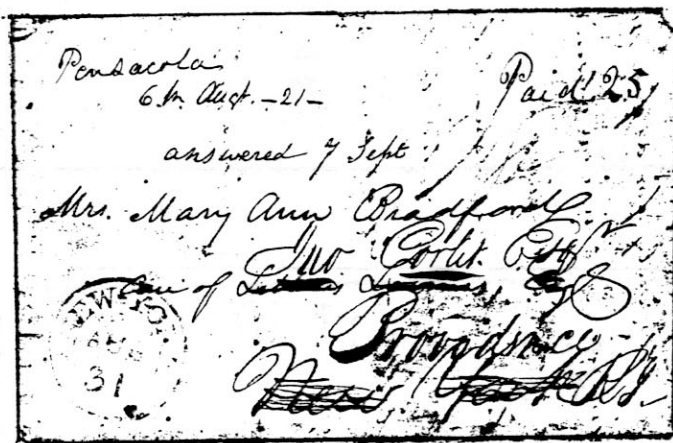 Pensacola
6th Augt. -21-
Paid 25
answered 7 Sept
Mrs. Mary Ann Bradford
Jno Esqr
Care of Esq
Providence
New York R I.
AUG
31